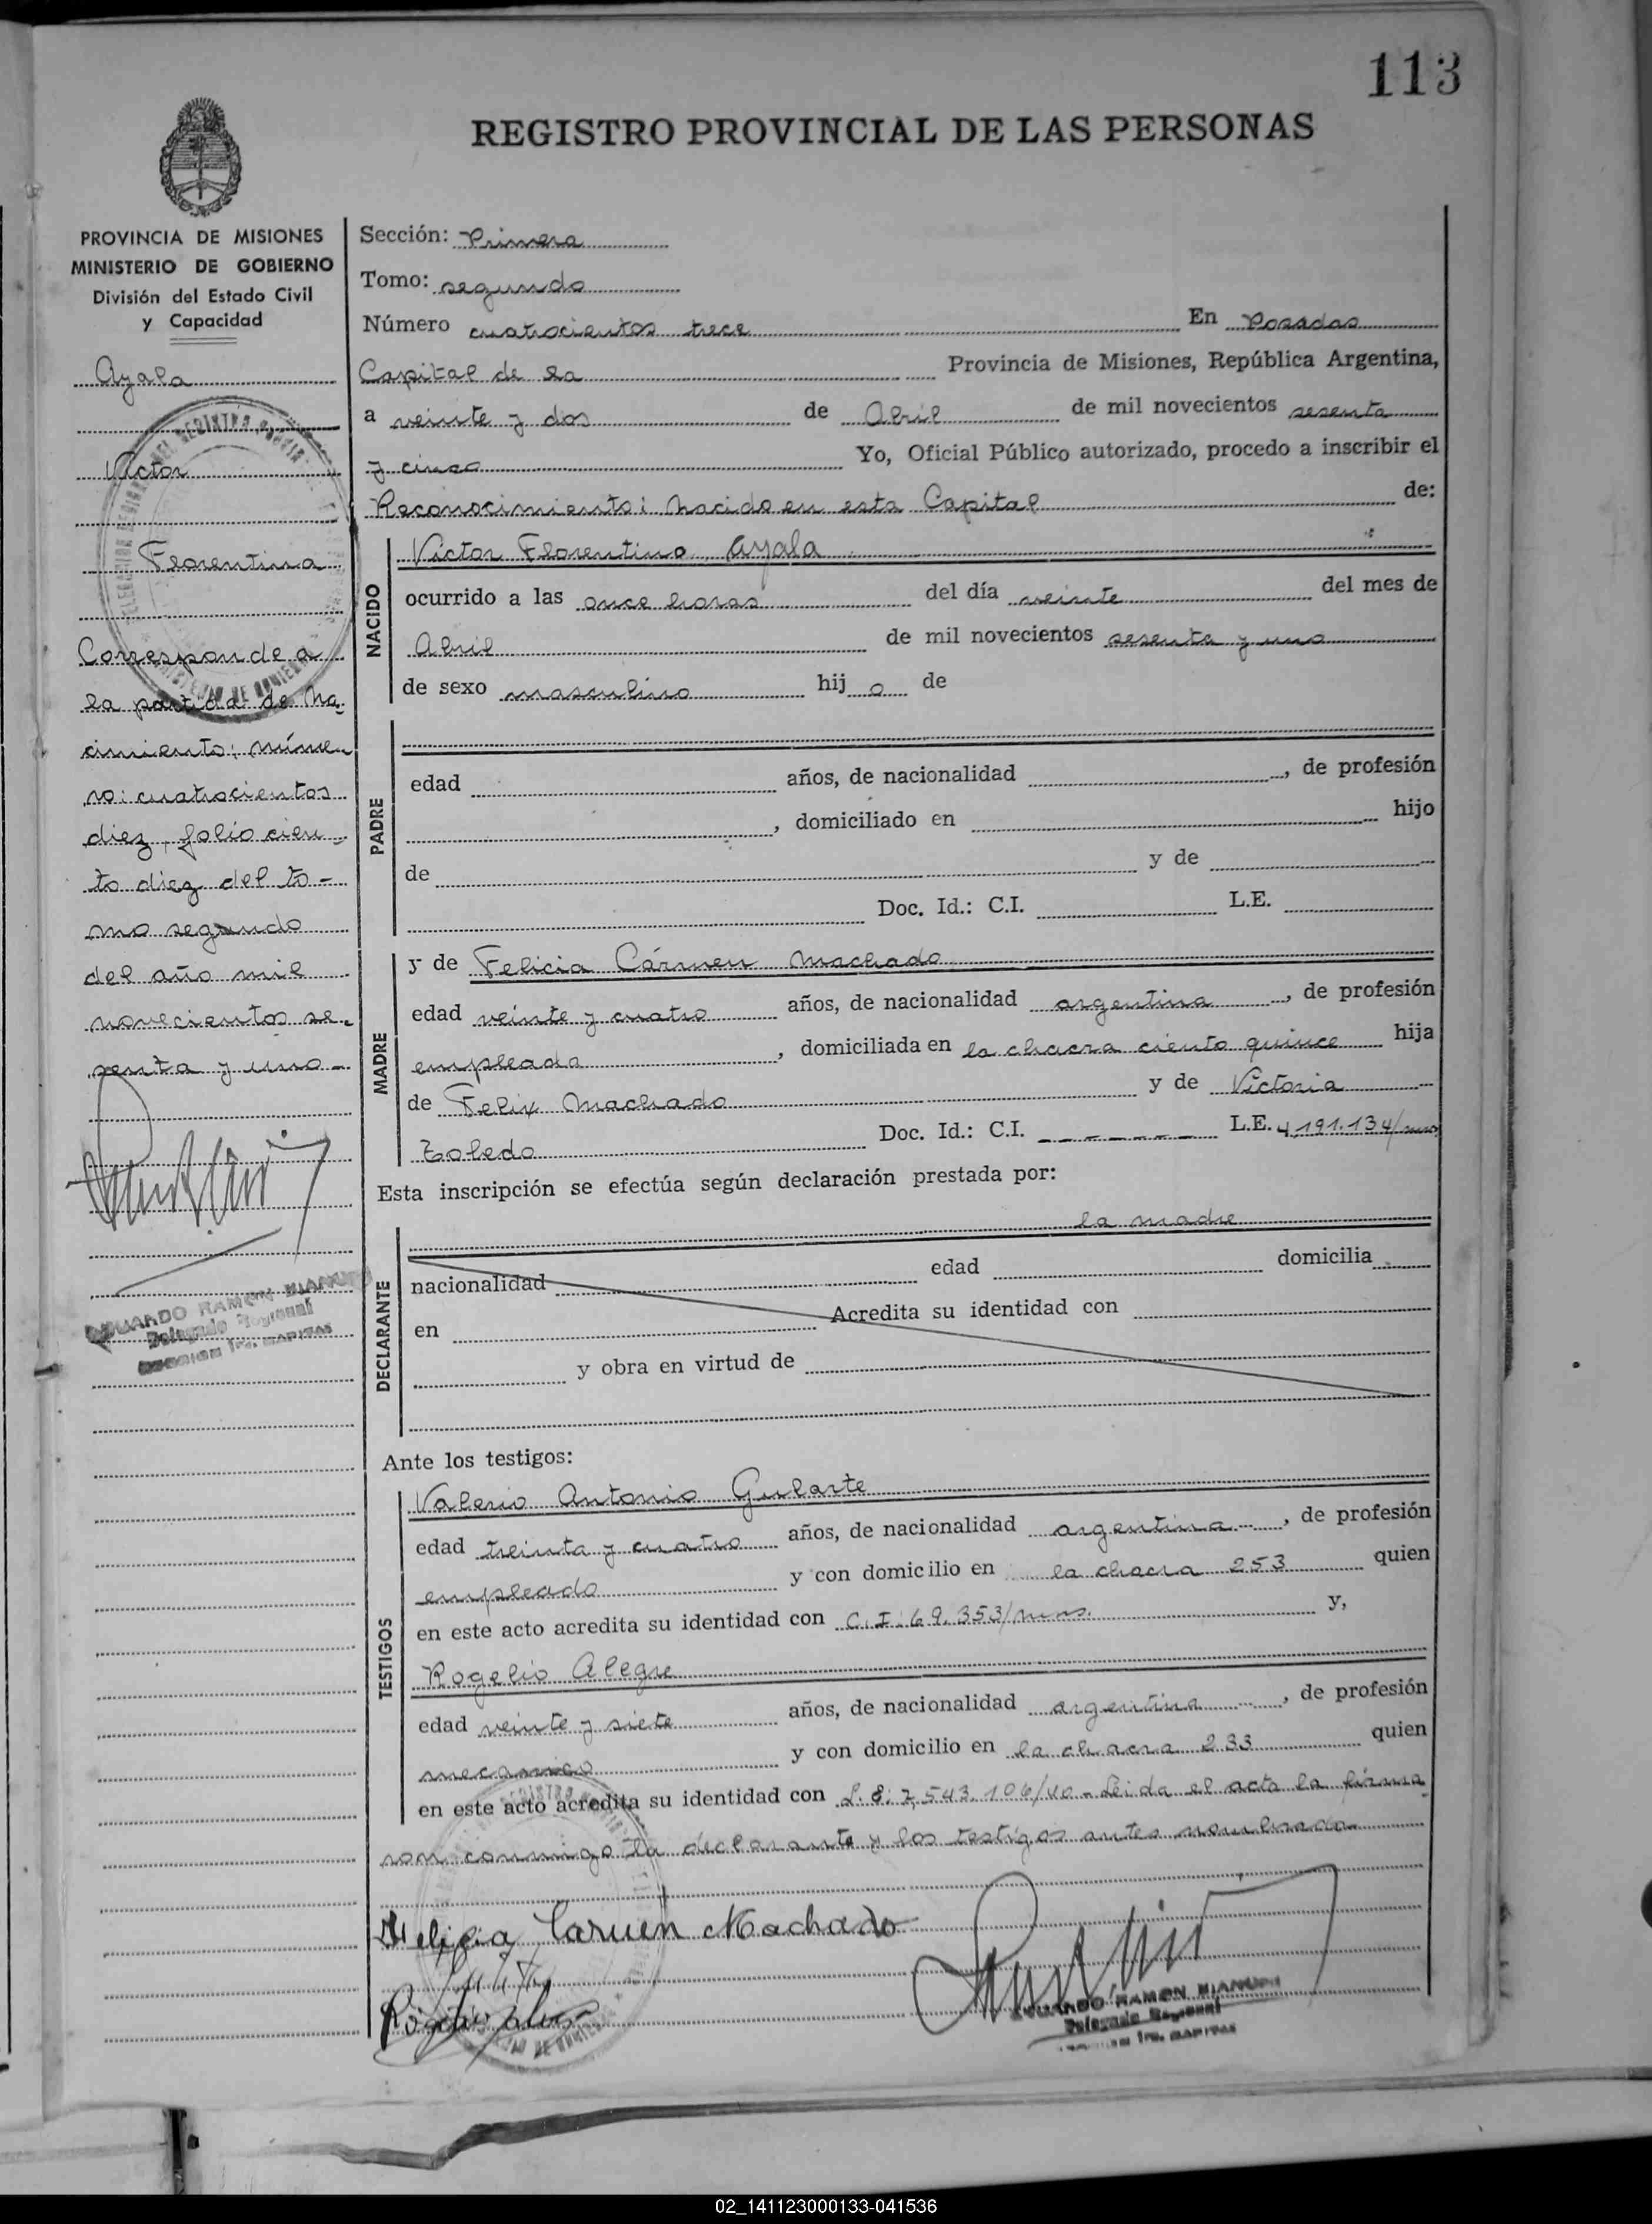 113
REGISTRO PROVINCIAL DE LAS PERSONAS
PROVINCIA DE MISIONES
MINISTERIO DE GOBIERNO
División del Estado Civil
y Capacidad
Ayala
Victor
Florentino
Corresponde a
la partida de Na-
cimiento: núme-
ro: cuatrocientos
diez, folio cien-
to diez del to-
mo segundo
del año mil
novecientos se-
senta y uno-
EDUARDO RAMON
Delegado Regional
Sección: Primera
Tomo: segundo
Número cuatrocientos trece En Posadas
Capital de la Provincia de Misiones, República Argentina,
a veinte y dos de Abril de mil novecientos sesenta
y cinco Yo, Oficial Público autorizado, procedo a inscribir el
Reconocimiento: Nacido en esta Capital de:
NACIDO
Victor Florentino Ayala
ocurrido a las once horas del día veinte del mes de
Abril de mil novecientos sesenta y uno
de sexo masculino hijo de
PADRE
edad años, de nacionalidad , de profesión
, domiciliado en hijo
de y de
Doc. Id.: C.I. L.E.
MADRE
y de Felicia Cármen Machado
edad veinte y cuatro años, de nacionalidad argentina , de profesión
empleada , domiciliada en la chacra ciento quince hija
de Felix Machado y de Victoria
Toledo Doc. Id.: C.I. - - - - - - - L.E. 4.191.134/mns
Esta inscripción se efectúa según declaración prestada por:
la madre
DECLARANTE
nacionalidad edad domicilia
en Acredita su identidad con
y obra en virtud de
Ante los testigos:
TESTIGOS
Valerio Antonio Gularte
edad treinta y cuatro años, de nacionalidad argentina , de profesión
empleado y con domicilio en la chacra 253 quien
en este acto acredita su identidad con C.I: 69.353/mns. y,
Rogelio Alegre
edad veinte y siete años, de nacionalidad argentina , de profesión
mecanico y con domicilio en la chacra 233 quien
en este acto acredita su identidad con L.E: 7,543.106/40 - Leida el acta la firma
ron conmigo la declarante y los testigos antes nombrados
Felicia Carmen Machado
EDUARDO RAMON
Delegado Regional
02_141123000133-041536